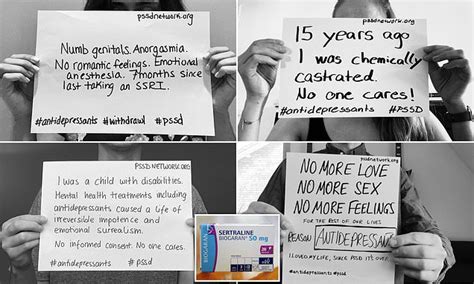 pssdnetwork.org
Numb genitals. Anorgasmia.
No romantic feelings. Emotional
anesthesia. 7months since
last taking an SSRI.
#antidepressants #withdrawl #pssd
pssdnetwork.org
15 years ago
I was chemically
castrated.
No one cares!
#antidepressants #PSSD
PSSDNETWORK.ORG
I was a child with disabilities.
Mental health treatments including
antidepressants caused a life of
irreversible impotence and
emotional surrealism.
No informed consent. No one cares.
#antidepressants #pssd
pssdnetwork.org
NO MORE LOVE
NO MORE SEX
NO MORE FEELINGS
FOR THE REST OF OUR LIVES
REASON ANTIDEPRESSANT
I LOVED MY LIFE, SINCE PSSD IT'S OVER
#antidepressants #pssd
SERTRALINE
BIOGARAN 50 mg
BIOGARAN